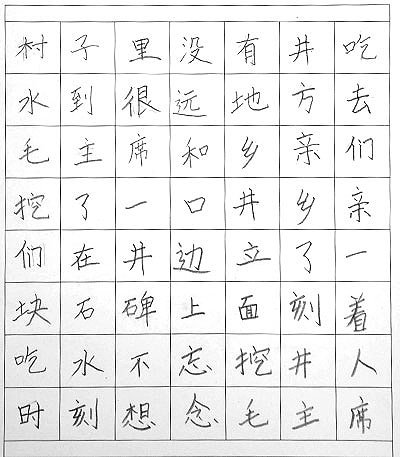 村子里没有井吃
水到很远地方去
毛主席和乡亲们
挖了一口井乡亲
们在井边立了一
块石碑上面刻着
吃水不忘挖井人
时刻想念毛主席